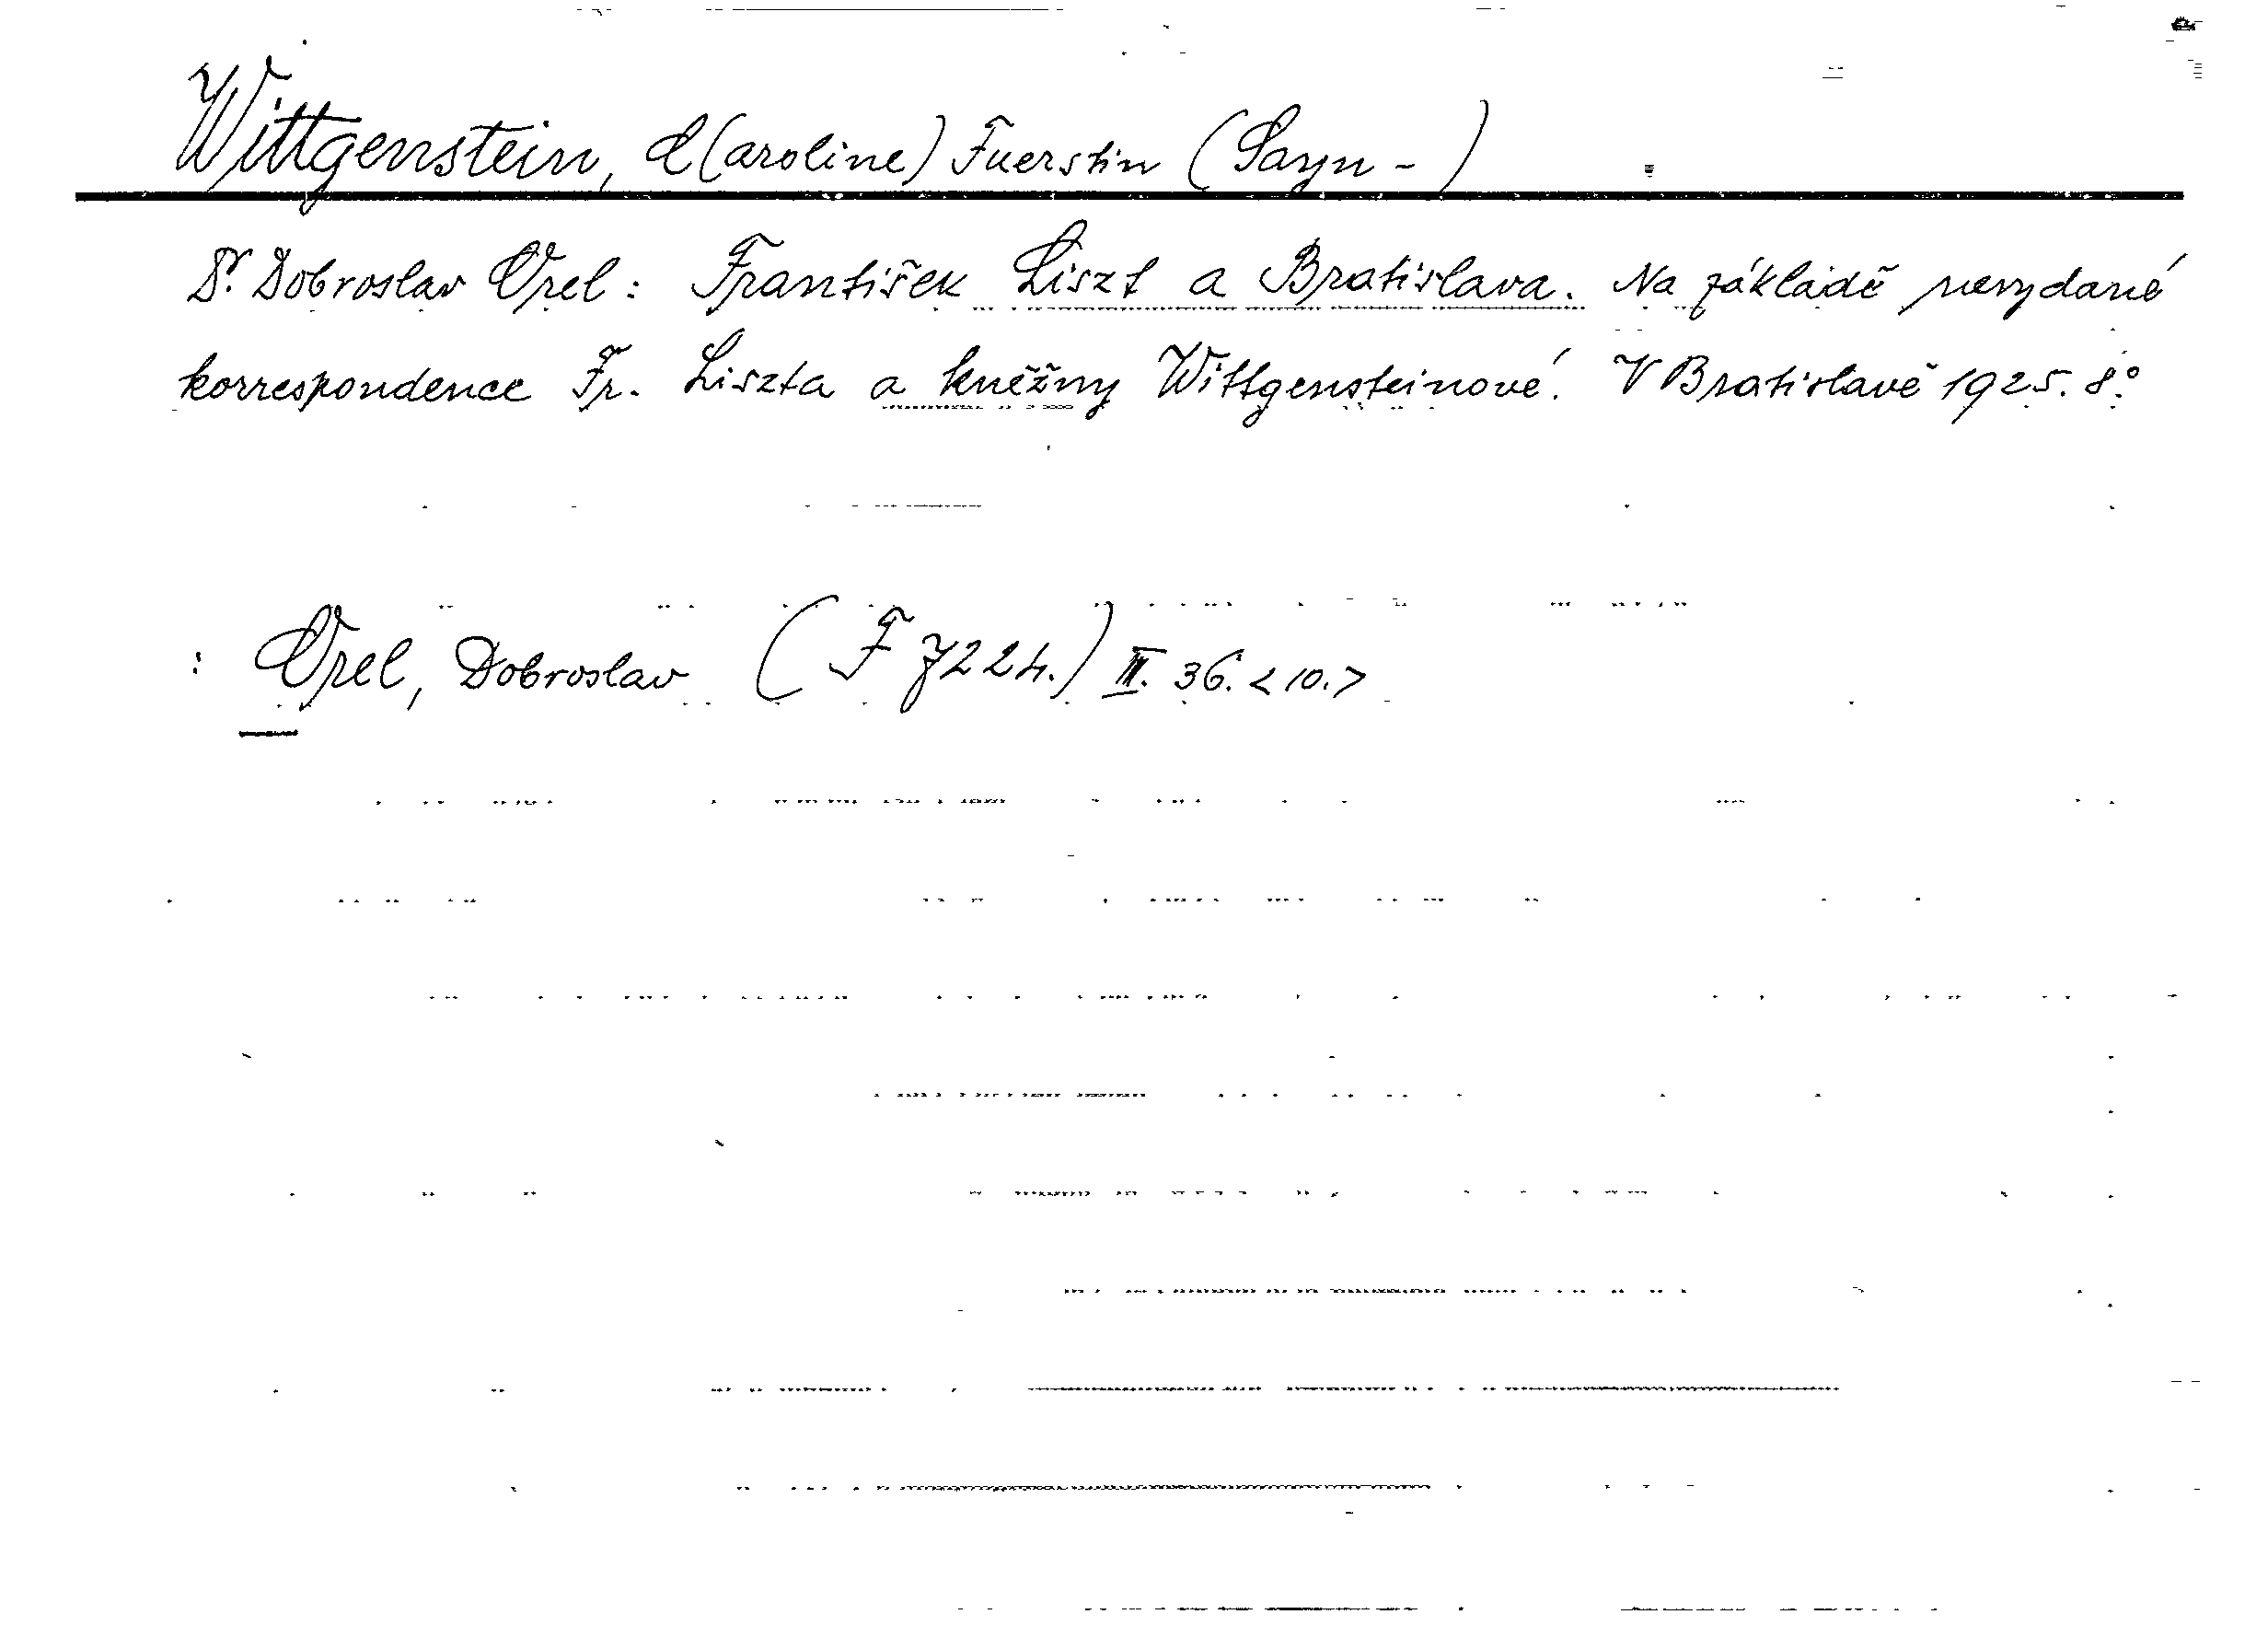 Wittgenstein, C(aroline) Fuerstin (Sayn-)
Dr. Dobroslav Orel: František Liszt a Bratislava. Na základě nevydané
korrespondence Fr. Liszta a kněžny Wittgensteinové. V Bratislavě 1925. 8°.
: Orel, Dobroslav (F 7224.) III. 36. <10.>